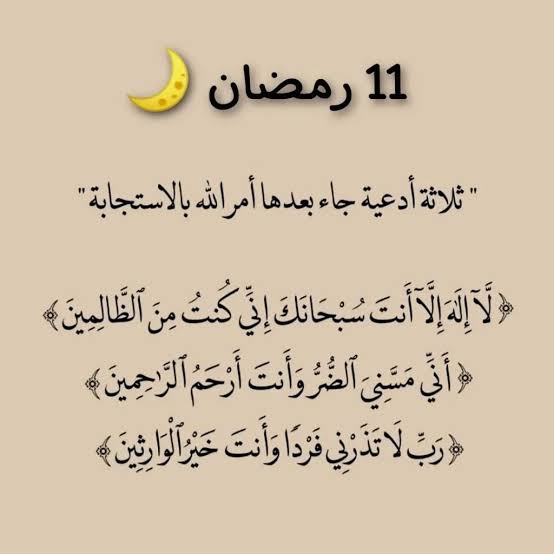 11 رمضان 🌙
" ثلاثة أدعية جاء بعدها أمر الله بالاستجابة "
﴿ لَّآ إِلَٰهَ إِلَّآ أَنتَ سُبْحَانَكَ إِنِّي كُنتُ مِنَ ٱلظَّالِمِينَ ﴾
﴿ أَنِّي مَسَّنِيَ ٱلضُّرُّ وَأَنتَ أَرْحَمُ ٱلرَّٰحِمِينَ ﴾
﴿ رَبِّ لَا تَذَرْنِي فَرْدًا وَأَنتَ خَيْرُ ٱلْوَارِثِينَ ﴾